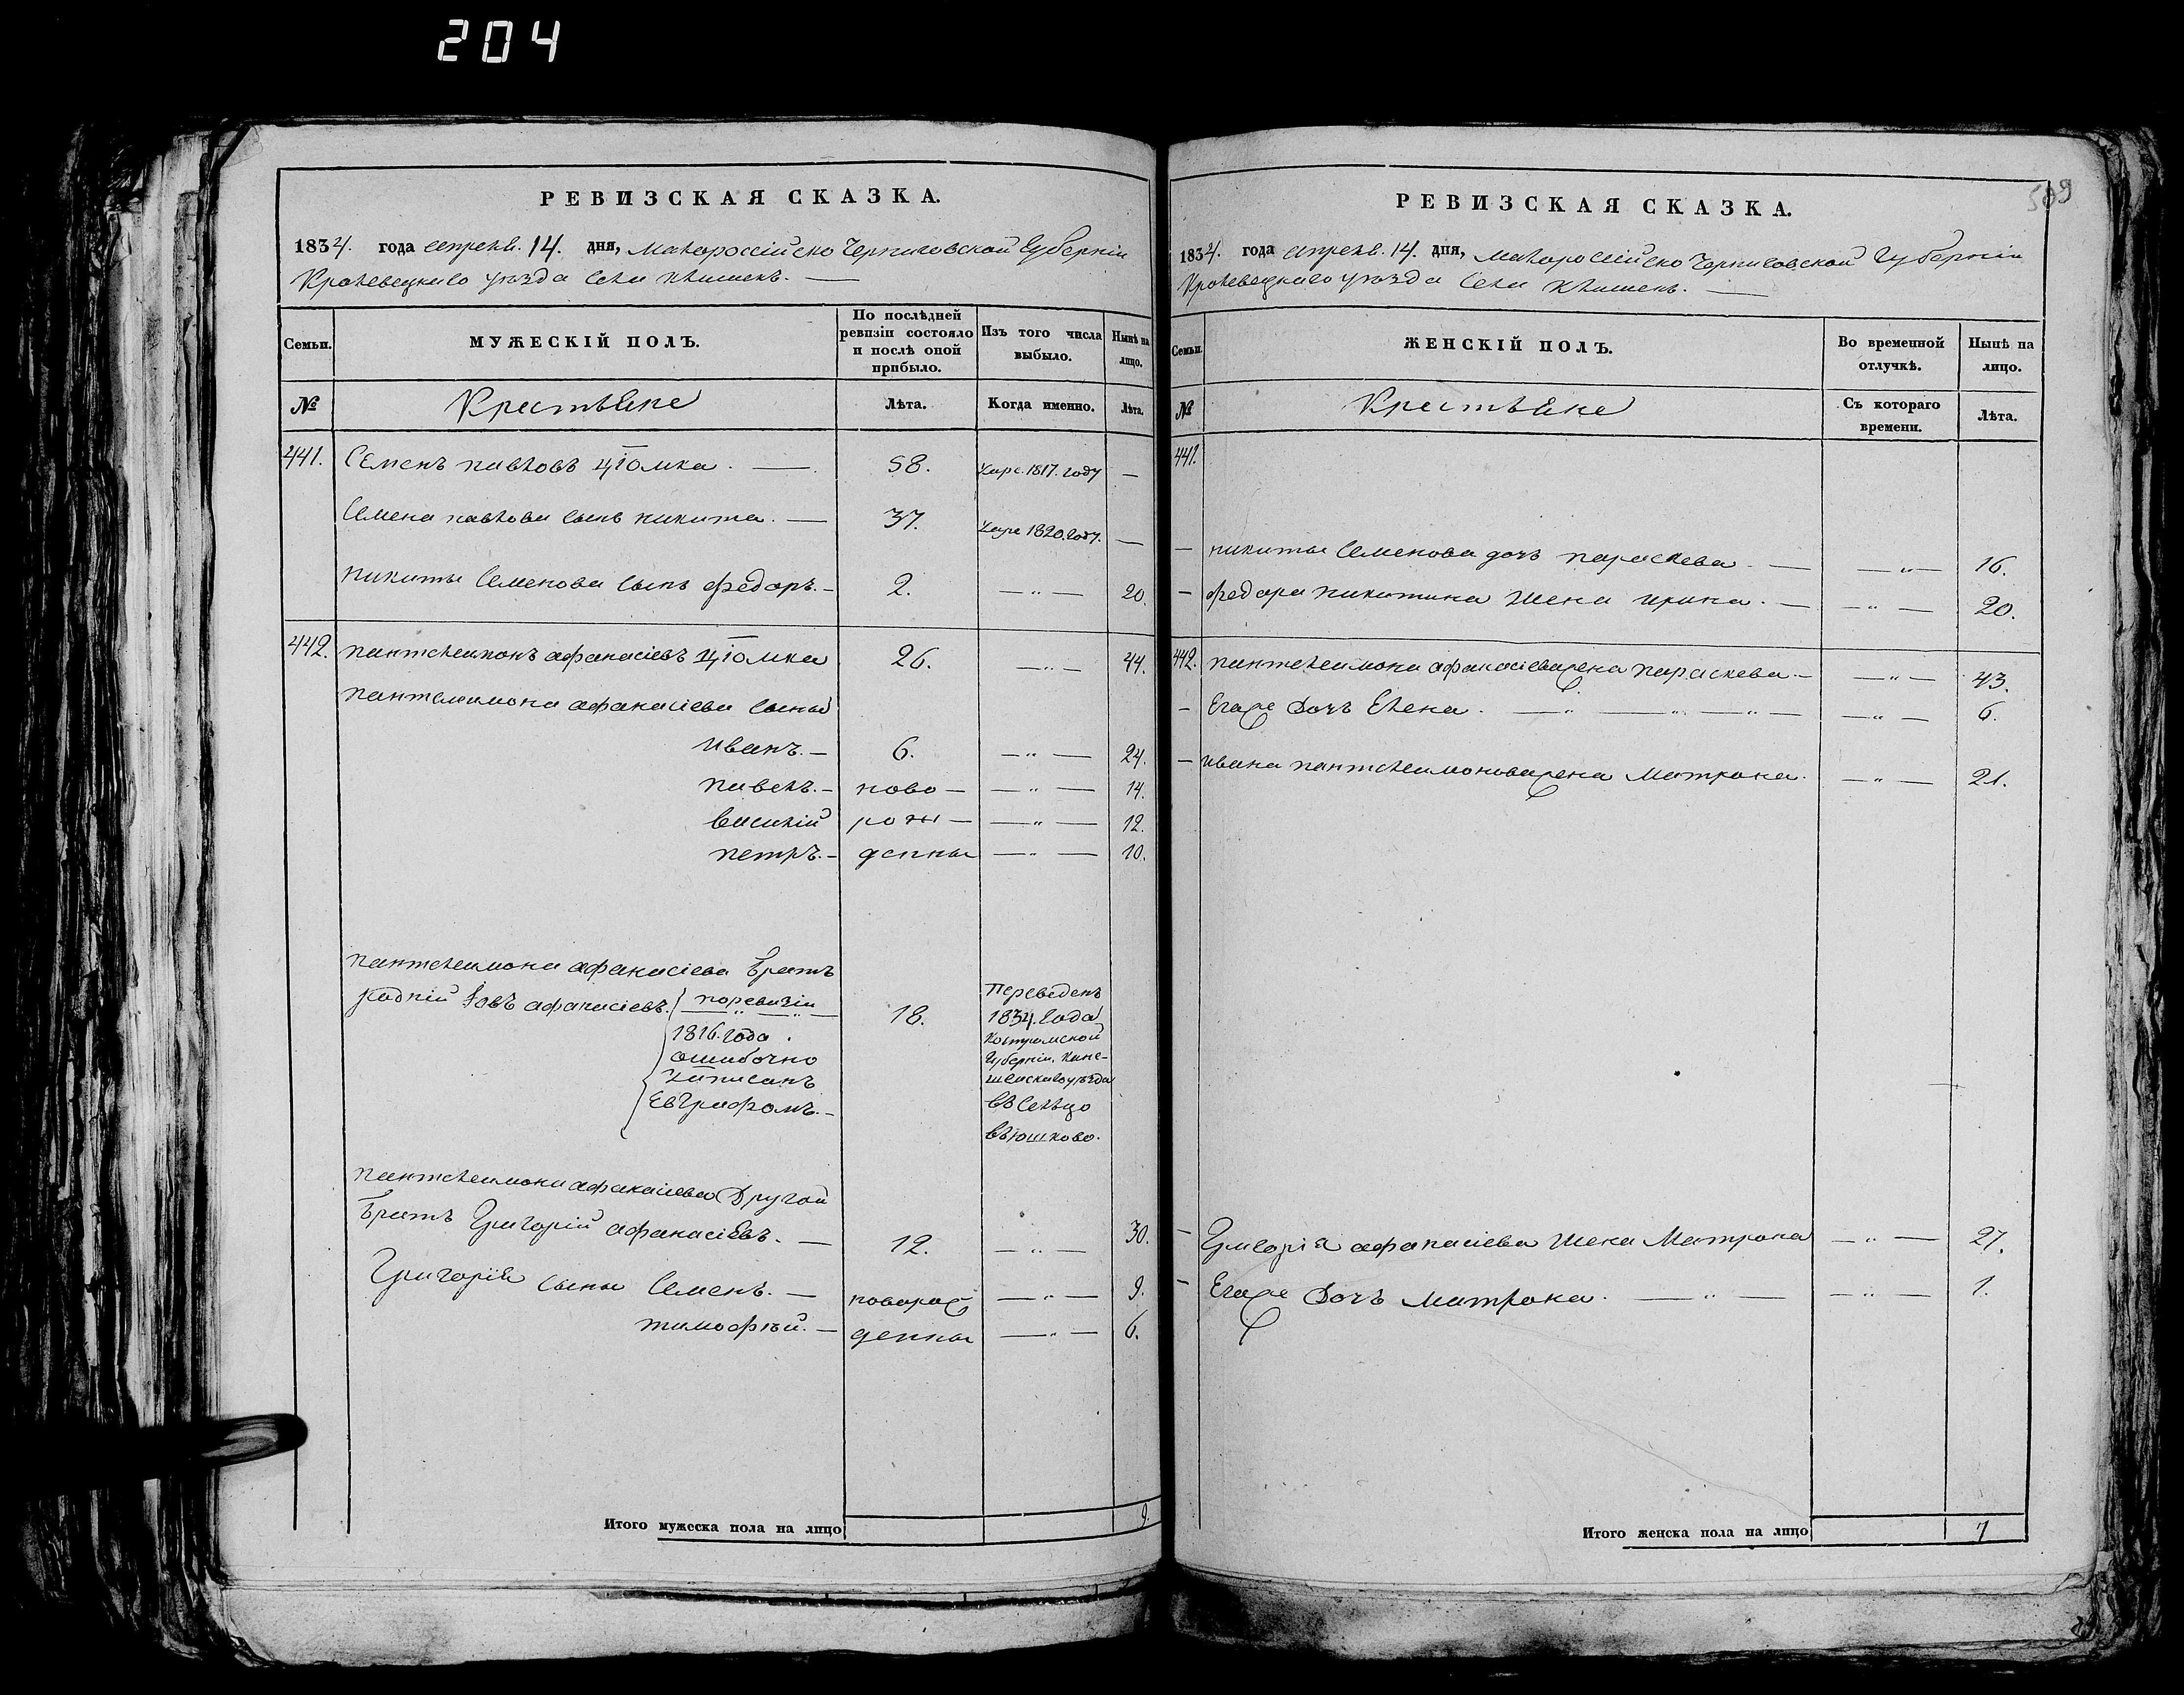 204
РЕВИЗСКАЯ СКАЗКА.
1834. года апреля. 14. дня, малороссійско Черниговской Губерніи
Кролевецкаго уѣзда Села Клишекъ.
Семьи. МУЖЕСКІЙ ПОЛЪ. По послѣдней ревизіи состояло и послѣ оной прибыло. Изъ того числа выбыло. Нынѣ на лицо.
№ Крестьяне Лѣта. Когда именно. Лѣта.
441. Семенъ павловъ Цюмка. — 58. умре. 1817. году —
Семена павлова сынъ никита. — 37. умре 1820. году. —
никиты Семенова сынъ федоръ. — 2. — „ — 20.
442. пантелеимонъ афанасіевъ Цюмка 26. — „ — 44.
пантелеимона афанасіева сыны
иванъ. — 6. — „ — 24.
павелъ. — ново — — „ — 14.
василій рож — — „ — 12.
петръ. — денны — „ — 10.
пантелеимона афанасіева братъ
родній Іовъ афанасіевъ. поревизіи 18.
1816. года
ошибочно
написанъ
Евграфомъ. —
Переведенъ
1834. года
Костромской
Губерніи, Кине-
шемскаго уѣзда
въ Сельцо
вьюшково.
пантелеимона афанасіева Другой
братъ Григорій афанасіевъ. — 12. — „ — 30.
Григорія сыны Семенъ. — поворож — „ — 9.
тимофѣй. — денны — „ — 6.
Итого мужеска пола на лицо 9.
509
РЕВИЗСКАЯ СКАЗКА.
1834. года апреля. 14. дня, малороссійско Черниговской Губерніи
Кролевецкаго уѣзда Села Клишекъ. —
Семьи. ЖЕНСКІЙ ПОЛЪ. Во временной отлучкѣ. Нынѣ на лицо.
№ Крестьяне Съ котораго времени. Лѣта.
441.
— никиты Семенова дочь параскева. — — „ — 16.
— федора никитина жена ирина. — — „ — 20.
442. пантелеимона афанасіева жена параскева. — — „ — 43.
— Егоже Дочь Елена. — „ — „ — „ — — „ — 6.
— ивана пантелеимонова жена Матрона. — „ — 21.
— Григорія афанасіева жена Матрона — „ — 27.
— Егоже Дочь матрона. — „ — — „ — 1.
Итого женска пола на лицо 7